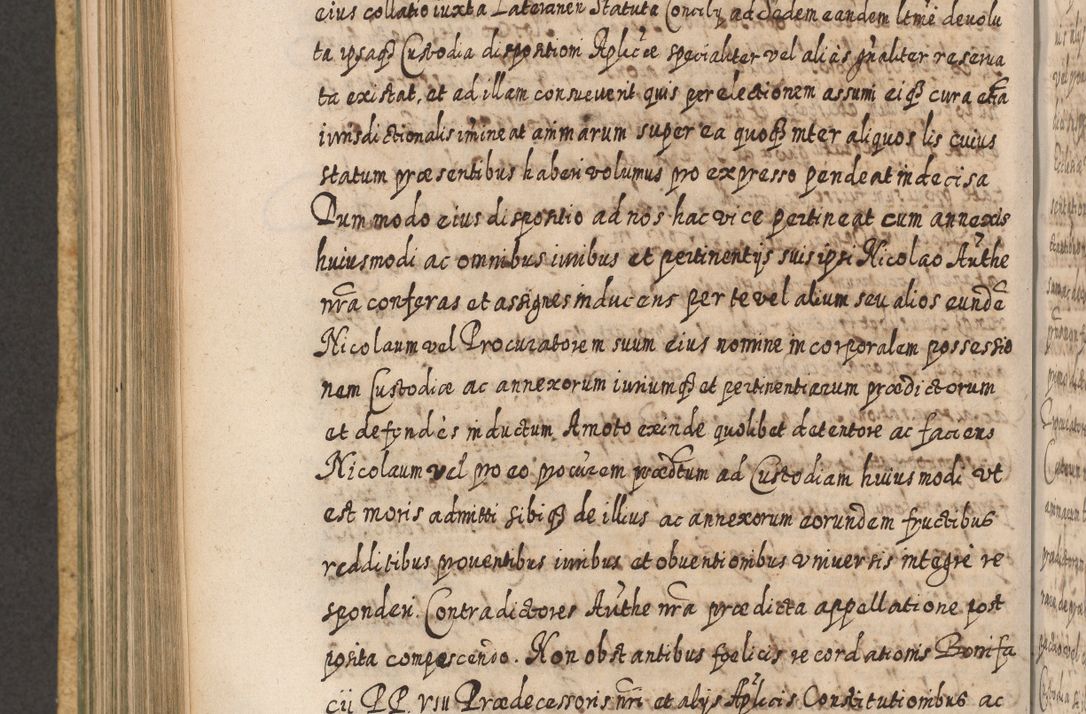 eius collatio iuxta Lateranen Statuta Concilÿ ad Sedem eandem ltmè devolu
ta ipsaq3 Custodia dispositioni Aplicæ specialiter vel aliàs gñaliter reserva
ta existat, et ad illam consueverit quis per electionem assumi eiq3 cura etiã
iurisdictionalis imineat animarum super ea quoq3 inter aliquos lis cuius
statum præsentibus haberi volumus pro expresso pendeat indecisa
Dummodo eius dispositio ad nos hac vice pertineat cum annexis
huiusmodi ac omnibus iuribus et pertinentÿs suis ipsi Nicolao Authe
nrã conferas et assignes inducens per te vel alium seu alios eundẽ
Nicolaum vel Procuratorem suum eius nomine in corporalem possessio
nem Custodiæ ac annexorum iuriumq3 et pertinentiarum prædictorum
et defendès inductum Amoto exinde quolibet detentore ac faciens
Nicolaum vel pro eo procurem prædtum ad Custodiam huiusmodi ut
est moris admitti sibiq3 de illius ac annexorum eorundem fructibus
redditibus proventibus iuribus et obventionibus universis integrè re
sponderi. Contradictores Authe nrã prædicta appellatione post
posita compescendo. Non obstantibus fœlicis recordationis Bonifa
cÿ PP. VIII Prædecessoris nrĩ et alÿs Aplicis Constitutionibus ac